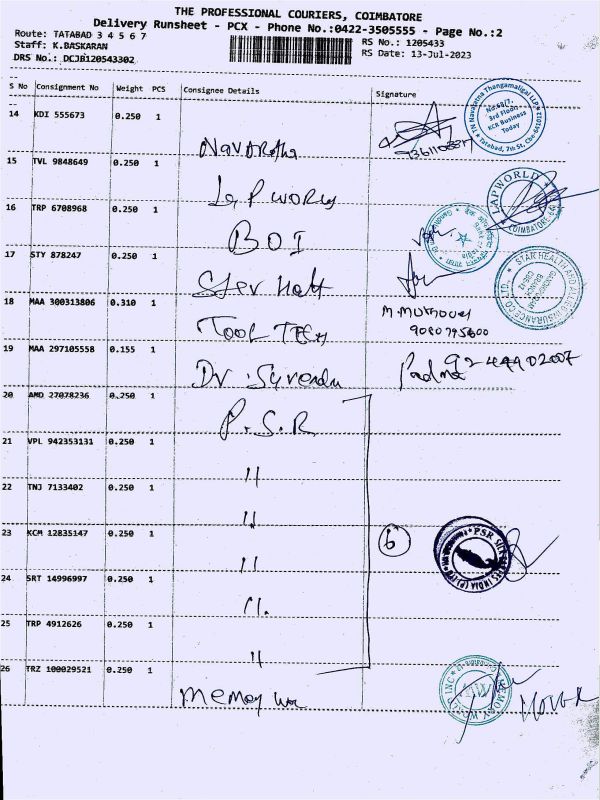 THE PROFESSIONAL COURIERS, COIMBATORE
Delivery Runsheet - PCX - Phone No.:0422-3505555 - Page No.:2
Route: TATABAD 3 4 5 6 7
RS No.: 1205433
Staff: K.BASKARAN
RS Date: 13-Jul-2023
DRS No.: DCJB120543302
S No Consignment No Weight PCS Consignee Details Signature
14 KDI 555673 0.250 1
Navaratna Thangamaligai LLP
No:69/7,
3rd Floor
KCR Business
Today
Tatabad, 7th St, Cbe-641012
15 TVL 9848649 0.250 1
Lap world
LAP WORLD
COIMBATORE
16 TRP 6708968 0.250 1
BOI
Bank of India
17 STY 878247 0.250 1
Star Healt
STAR HEALTH AND ALLIED INSURANCE CO LTD.
18 MAA 300313806 0.310 1
TOOL TECH
9080795600
19 MAA 297105558 0.155 1
Dr. Surendu
Padma
20 AMD 27078236 0.250 1
P.S.R
21 VPL 942353131 0.250 1
"
22 TNJ 7133402 0.250 1
"
23 KCM 12835147 0.250 1
"
6
PSR SILKS
INDIA (P)
24 SRT 14996997 0.250 1
"
25 TRP 4912626 0.250 1
"
26 TRZ 100029521 0.250 1